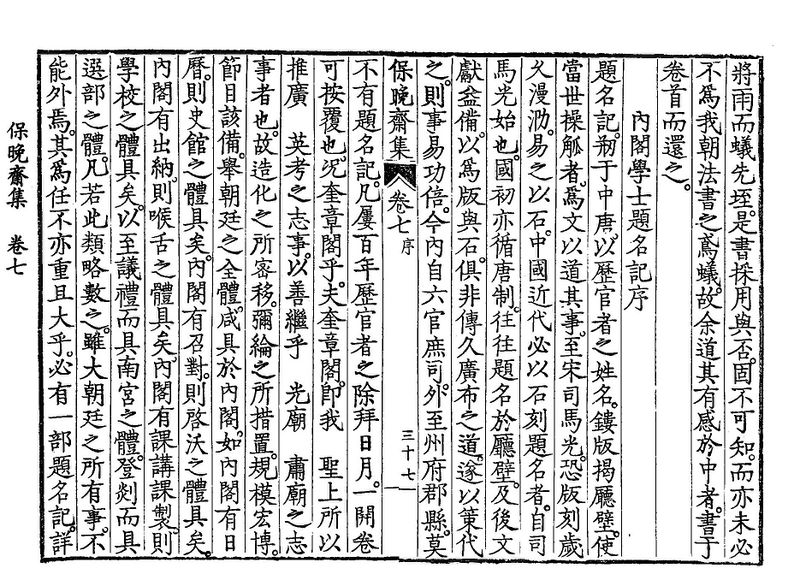 將雨而蟻先垤。是書採用與否。固不可知。而亦未必
不爲我朝法書之鳶蟻。故余道其有感於中者。書于
卷首而還之。
內閣學士題名記序
題名記。刱于中唐。以歷官者之姓名。鏤版揭廳壁。使
當世操觚者。爲文以道其事。至宋司馬光。恐版刻歲
久漫泐。易之以石。中國近代必以石刻題名者。自司
馬光始也。國初亦循唐制。往往題名於廳壁。及後文
獻益備。以爲版與石。俱非傳久廣布之道。遂以策代
之。則事易功倍。今內自六官庶司。外至州府郡縣。莫
保晚齋集 卷七 序 三十七
不有題名記。凡屢百年歷官者之除拜日月。一開卷
可按覆也。況奎章閣乎。夫奎章閣。卽我 聖上所以
推廣 英考之志事。以善繼乎 光廟 肅廟之志
事者也。故造化之所密移。彌綸之所措置。規模宏博。
節目該備。舉朝廷之全體。咸具於內閣。如內閣有日
曆。則史館之體具矣。內閣有召對。則啓沃之體具矣。
內閣有出納。則喉舌之體具矣。內閣有課講課製。則
學校之體具矣。以至議禮而具南宮之體。登剡而具
選部之體。凡若此類略數之。雖大朝廷之所有事。不
能外焉。其爲任不亦重且大乎。必有一部題名記。詳
保晚齋集 卷七